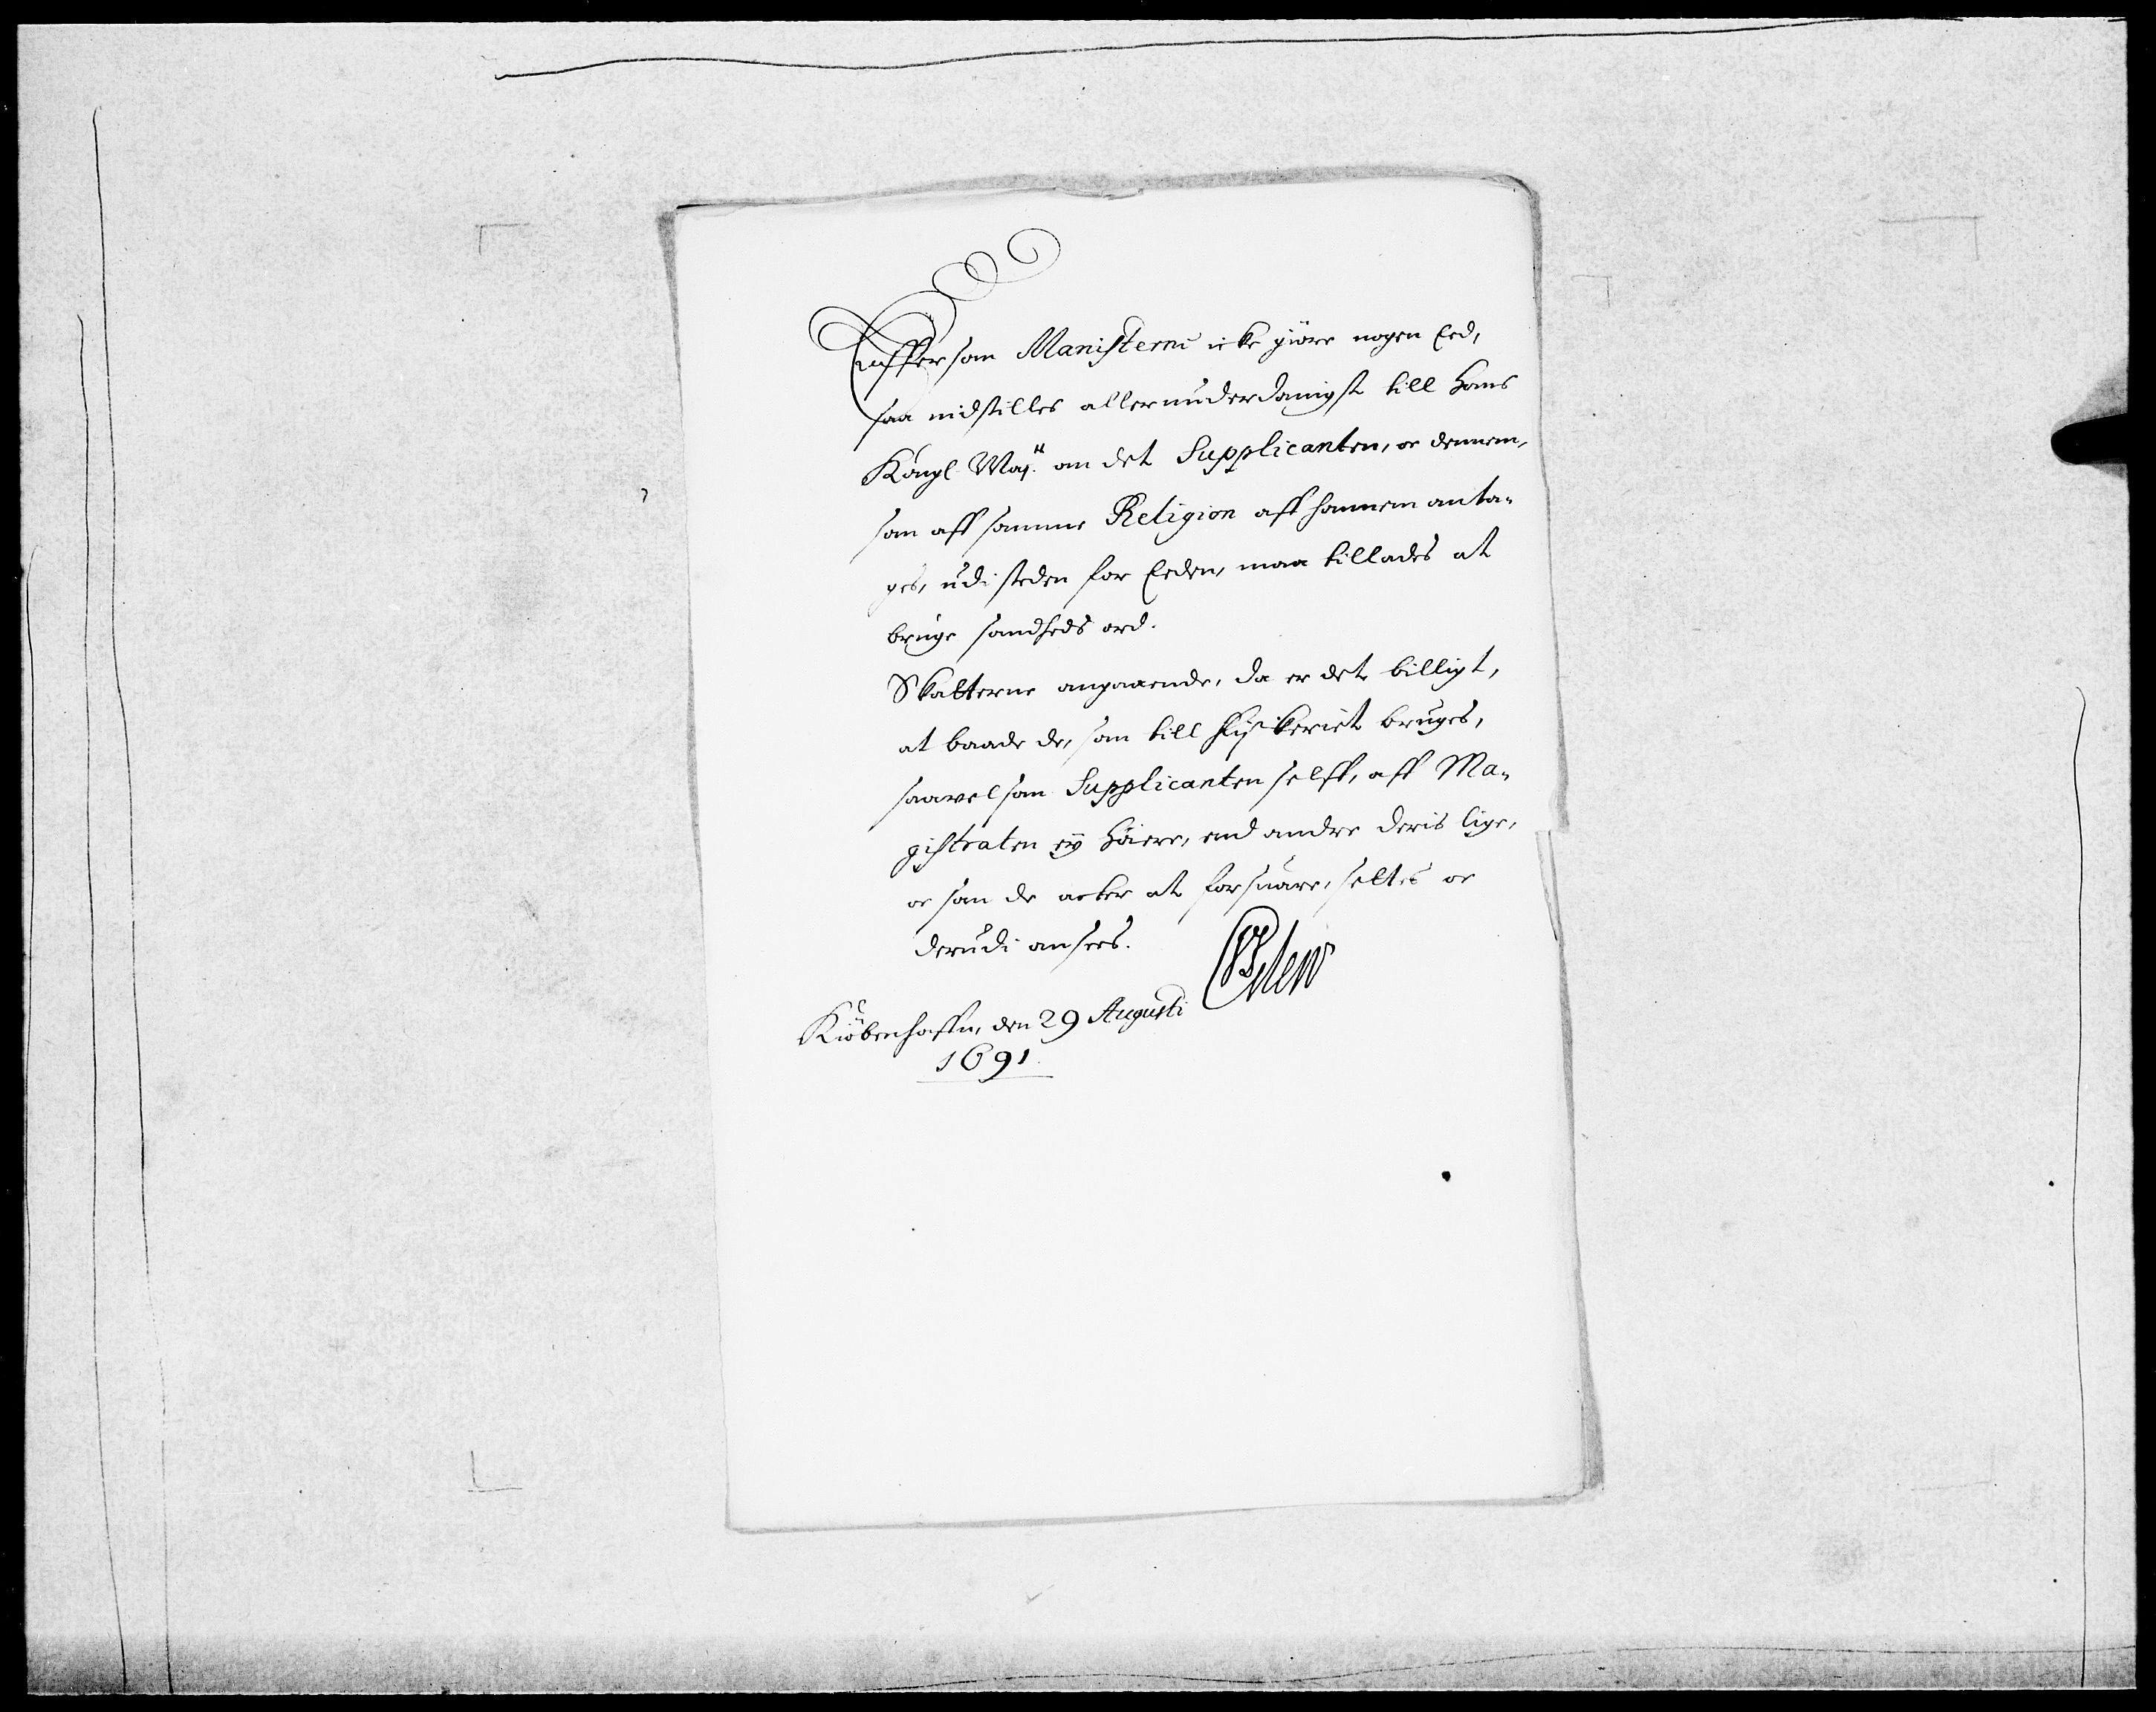 Eufftersom Manisterne icke giöre nogen Eed,
saa indstilles allerunderdanigst till Hans
Kongl Maj.tt om det Supplicanten, oc dennem,
som aff samme Religion aff hannem anta-
ges, udi steden for Eeden, maa tillades at
bruge sandheds ord.
Skatterne angaaende, da er det billigt,
at baade de, som till Fiskeriet bruges,
saavel som Supplicanten selff, aff Ma-
gistraten ey höiere, end andre deris lige,
oc som de acter at forsuare, settes oc
derudi ansees.
Kiöbenhaffn, den 29 Augusti
1691